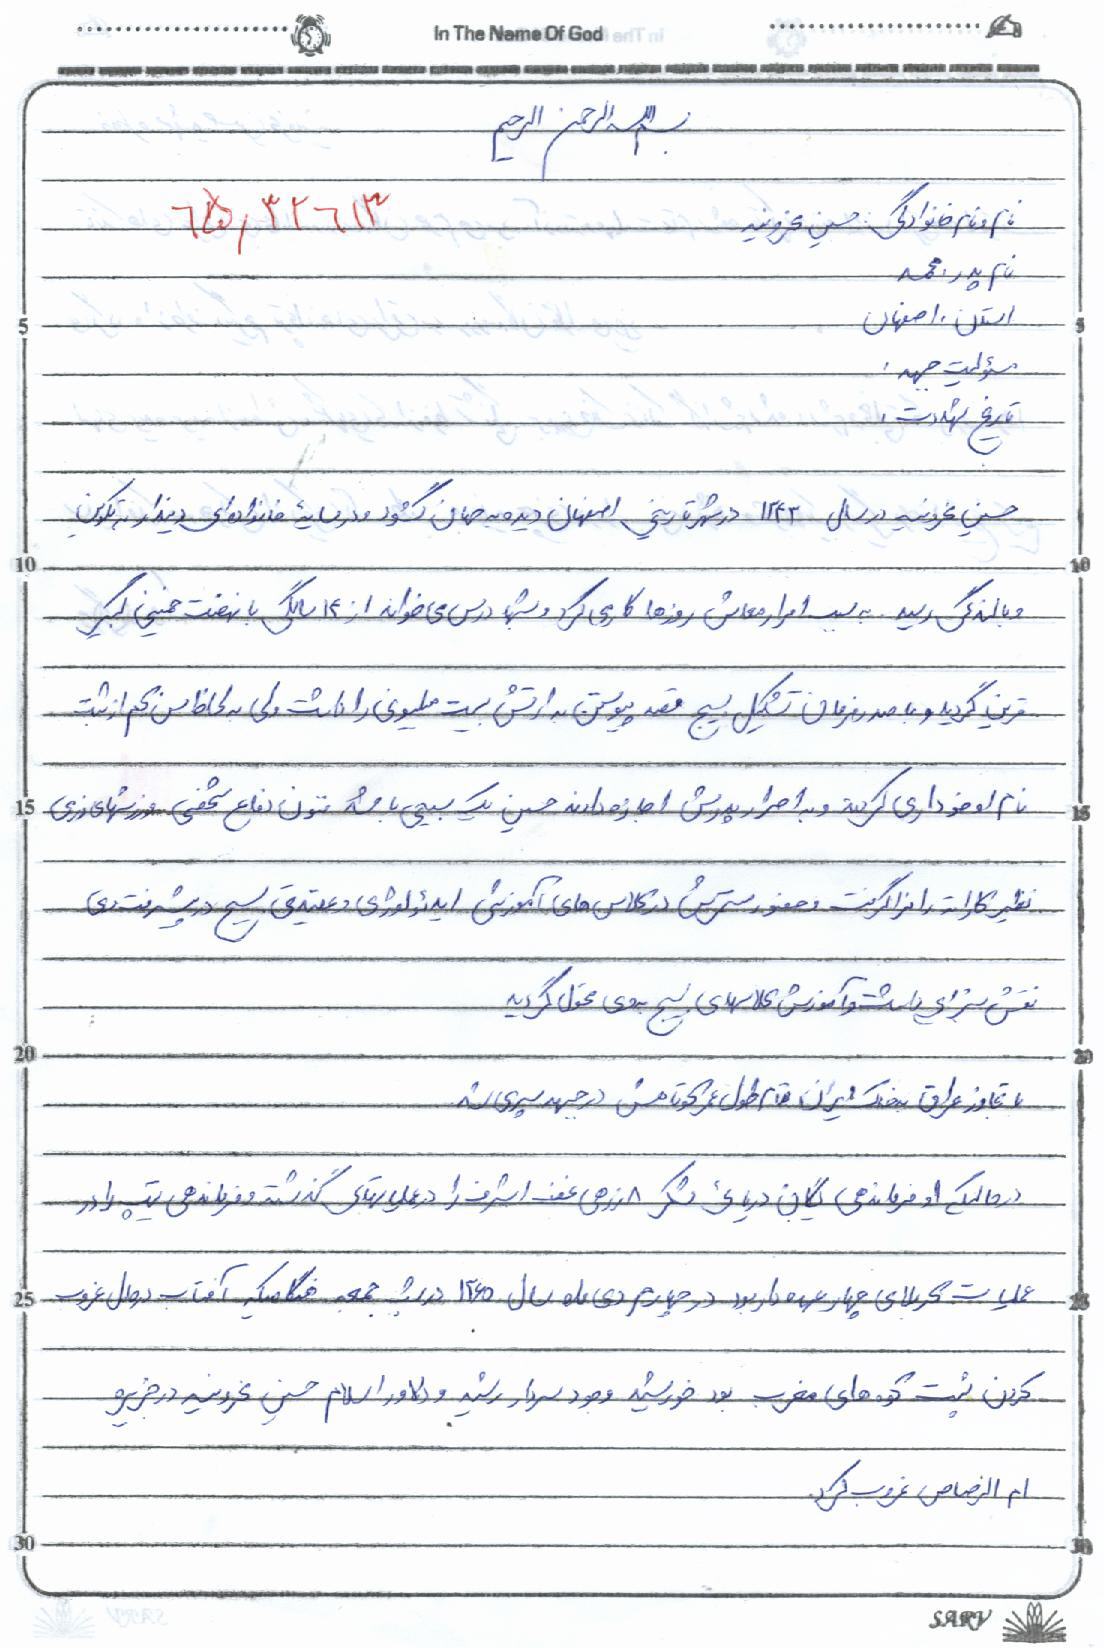 In The Name Of God
بسم الله الرحمن الرحیم
۶۵,۳۲۶۱۳
نام و نام خانوادگی: حسین
نام پدر: محمد
استان: اصفهان
مسئولیت جبهه:
تاریخ شهادت:
حسین در سال ۱۳۴۳ در شهر تاریخی اصفهان دیده به جهان گشود و در سایهٔ خانواده‌ای دیندار به تکوین
و بالندگی رسید. به سبب امرار معاش روزها کار می کرد و شبها درس می خواند از ۱۴ سالگی با نهضت خمینی کبیر
قرین گردید و با صدور فرمان تشکیل بسیج قصد پیوستن به ارتش بیست میلیونی را داشت ولی به لحاظ سن کم از ثبت
نام او خودداری کردند و به اصرار پدرش اجازه دادند حسین یک بسیجی باشد فنون دفاع شخصی ورزشهای رزمی
نظیر کاراته را فرا گرفت و حضور مستمرش در کلاس های آموزشی ایدئولوژی و عقیدتی بسیج در پیشرفت وی
نقش بسزایی داشت و آموزش کلاسهای بسیج به وی محول گردید
با تجاوز عراق به خاک ایران تمام طول عمر کوتاهش در جبهه سپری شد
در حالیکه او فرماندهی یگان دریایی لشکر ۸ زرهی نجف اشرف را در عملیاتهای گذشته و فرماندهی تیپ را در
عملیات کربلای چهار عهده دار بود در چهارم دی ماه سال ۱۳۶۵ در شب جمعه هنگامیکه آفتاب در حال غروب
کردن پشت کوه های مغرب بود خورشید وجود سردار رشید و دلاور اسلام حسین در جزیره
ام الرصاص غروب کرد.
5
10
15
20
25
30
SARV